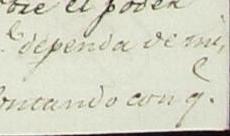 el poder
dependa de mi,
contando con q.